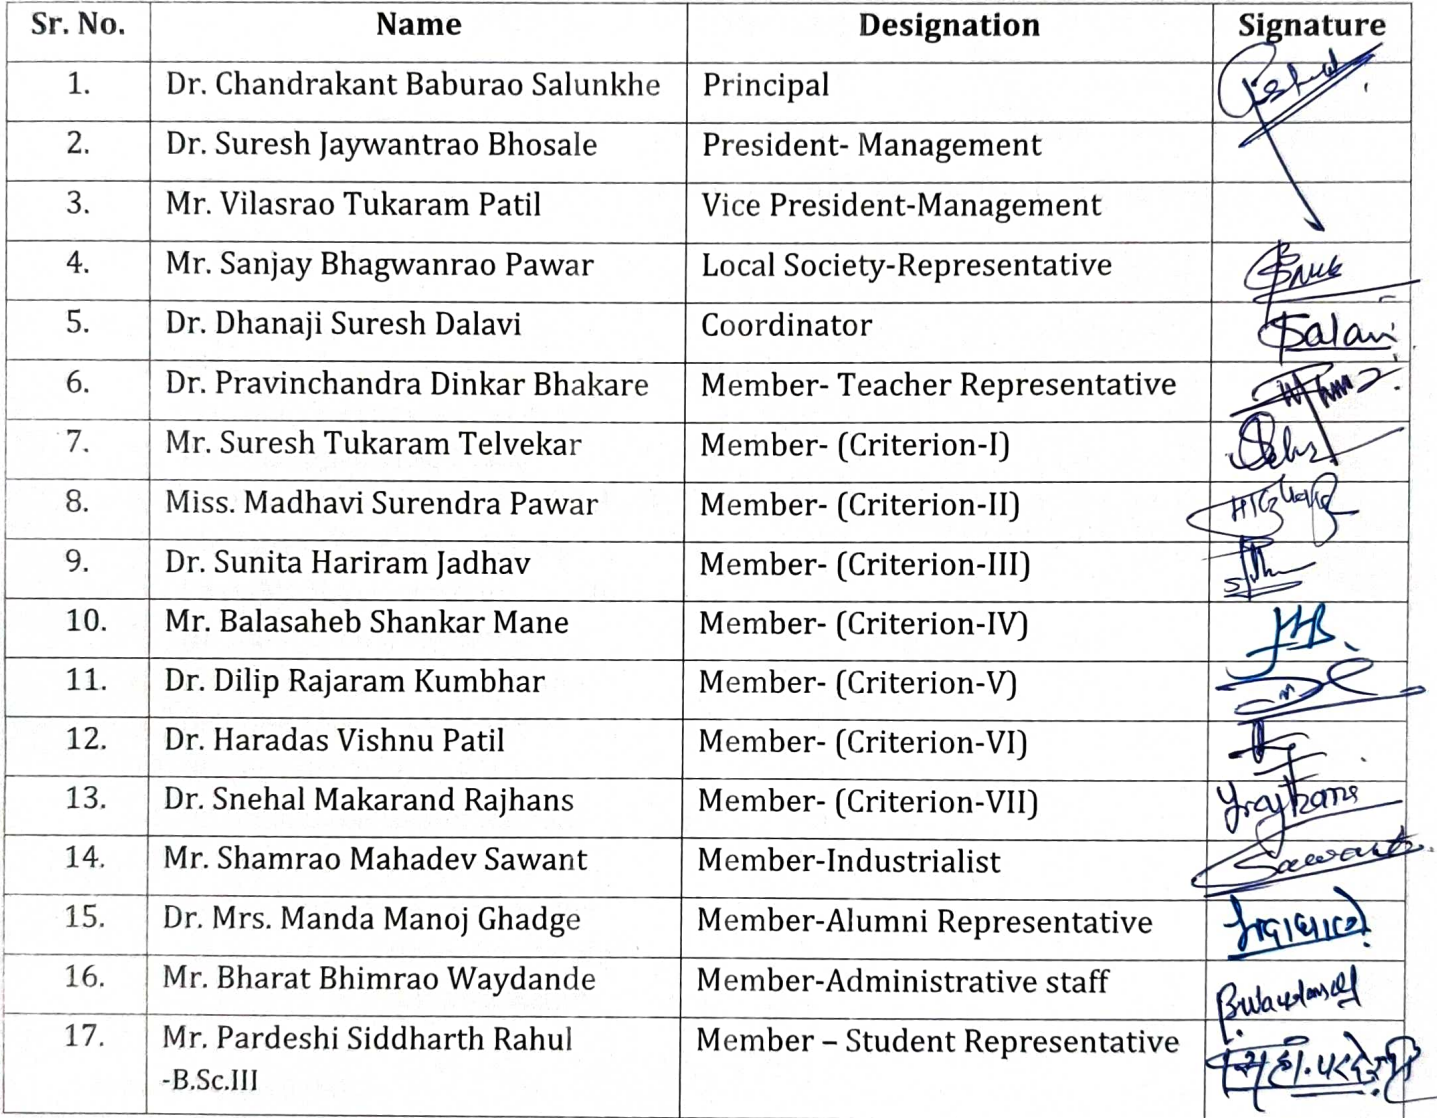 Sr. No. Name Designation Signature
1. Dr. Chandrakant Baburao Salunkhe Principal
2. Dr. Suresh Jaywantrao Bhosale President- Management
3. Mr. Vilasrao Tukaram Patil Vice President-Management
4. Mr. Sanjay Bhagwanrao Pawar Local Society-Representative
5. Dr. Dhanaji Suresh Dalavi Coordinator Dalavi
6. Dr. Pravinchandra Dinkar Bhakare Member- Teacher Representative
7. Mr. Suresh Tukaram Telvekar Member- (Criterion-I)
8. Miss. Madhavi Surendra Pawar Member- (Criterion-II)
9. Dr. Sunita Hariram Jadhav Member- (Criterion-III)
10. Mr. Balasaheb Shankar Mane Member- (Criterion-IV)
11. Dr. Dilip Rajaram Kumbhar Member- (Criterion-V)
12. Dr. Haradas Vishnu Patil Member- (Criterion-VI)
13. Dr. Snehal Makarand Rajhans Member- (Criterion-VII)
14. Mr. Shamrao Mahadev Sawant Member-Industrialist Sawant
15. Dr. Mrs. Manda Manoj Ghadge Member-Alumni Representative
16. Mr. Bharat Bhimrao Waydande Member-Administrative staff
17. Mr. Pardeshi Siddharth Rahul Member – Student Representative
-B.Sc.III